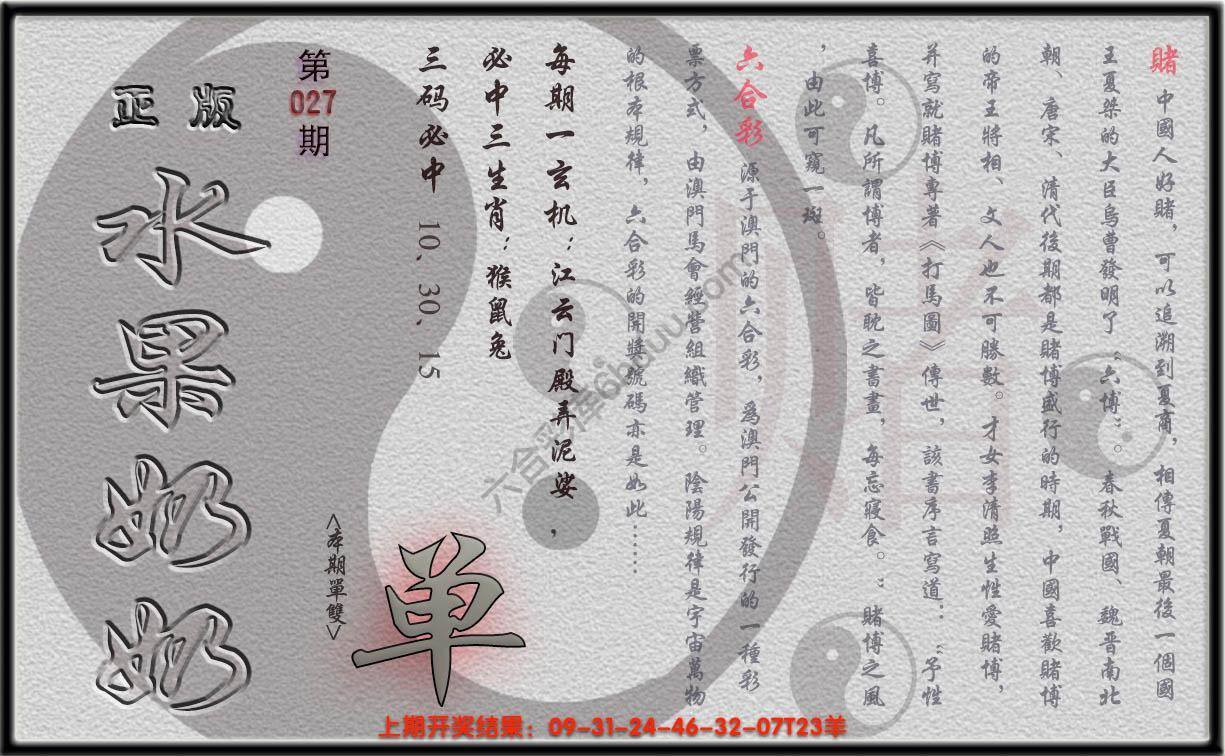 賭 中國人好賭，可以追溯到夏商，相傳夏朝最後一個國
王夏桀的大臣烏曹發明了“六博”。春秋戰國、魏晋南北
朝、唐宋、清代後期都是賭博盛行的時期，中國喜歡賭博
的帝王將相、文人也不可勝數。才女李清照生性愛賭博，
并寫就賭博專著《打馬圖》傳世，該書序言寫道：“予性
喜博。凡所謂博者，皆耽之書畫，每忘寢食。”賭博之風
，由此可窺一斑。
六合彩 源于澳門的六合彩，爲澳門公開發行的一種彩
票方式，由澳門馬會經營組織管理。陰陽規律是宇宙萬物
的根本規律，六合彩的開獎號碼亦是如此……
每期一玄机：江云门殿弄泥娑，
必中三生肖：猴鼠兔
三码必中 10、30、15
第
027
期
<本期單雙>
单
正版
水果奶奶
賭
上期开奖结果：09-31-24-46-32-07T23羊